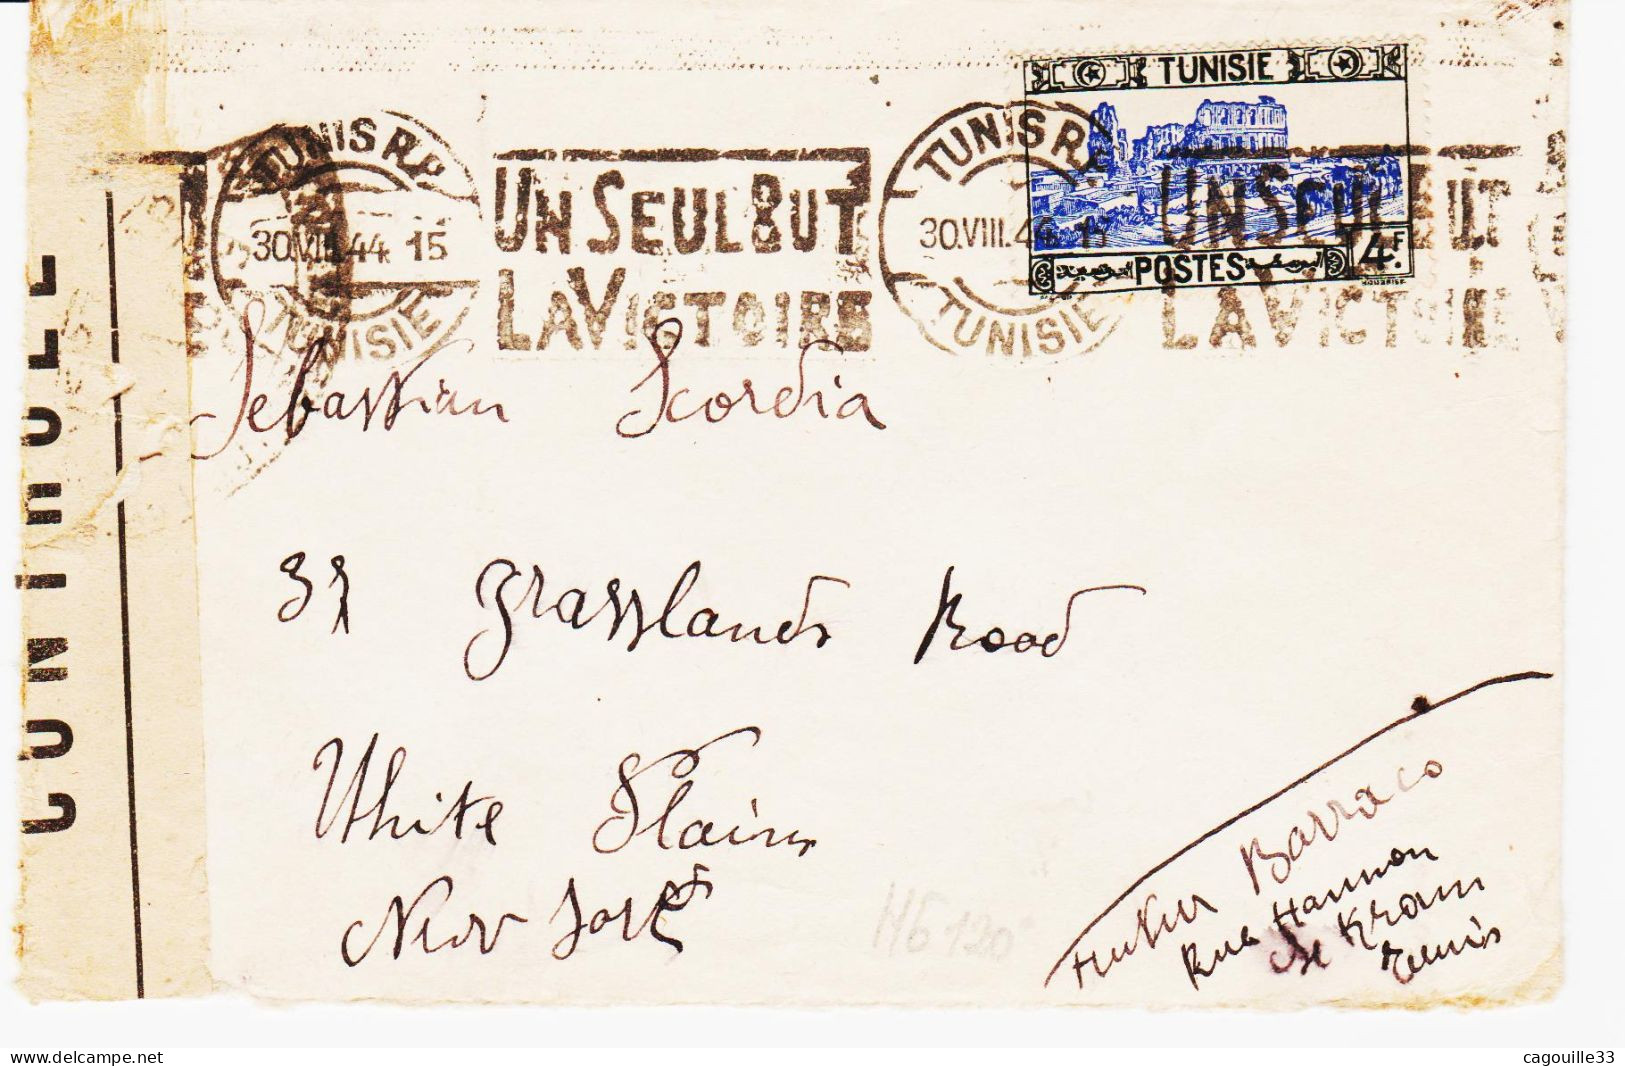 CONTROLE
TUNIS R.P.
30.VIII.44 15
TUNISIE
UN SEUL BUT
LA VICTOIRE
TUNIS R.P.
30.VIII.44 15
TUNISIE
UN SEUL BUT
LA VICTOIRE
TUNISIE
POSTES
4F.
Sebastian Scordia
37 Grasslands Road
White Plains
New York
HG 120
Barraco
Rue Hannon
Le Kram
Tunis
www.delcampe.net
cagouille33